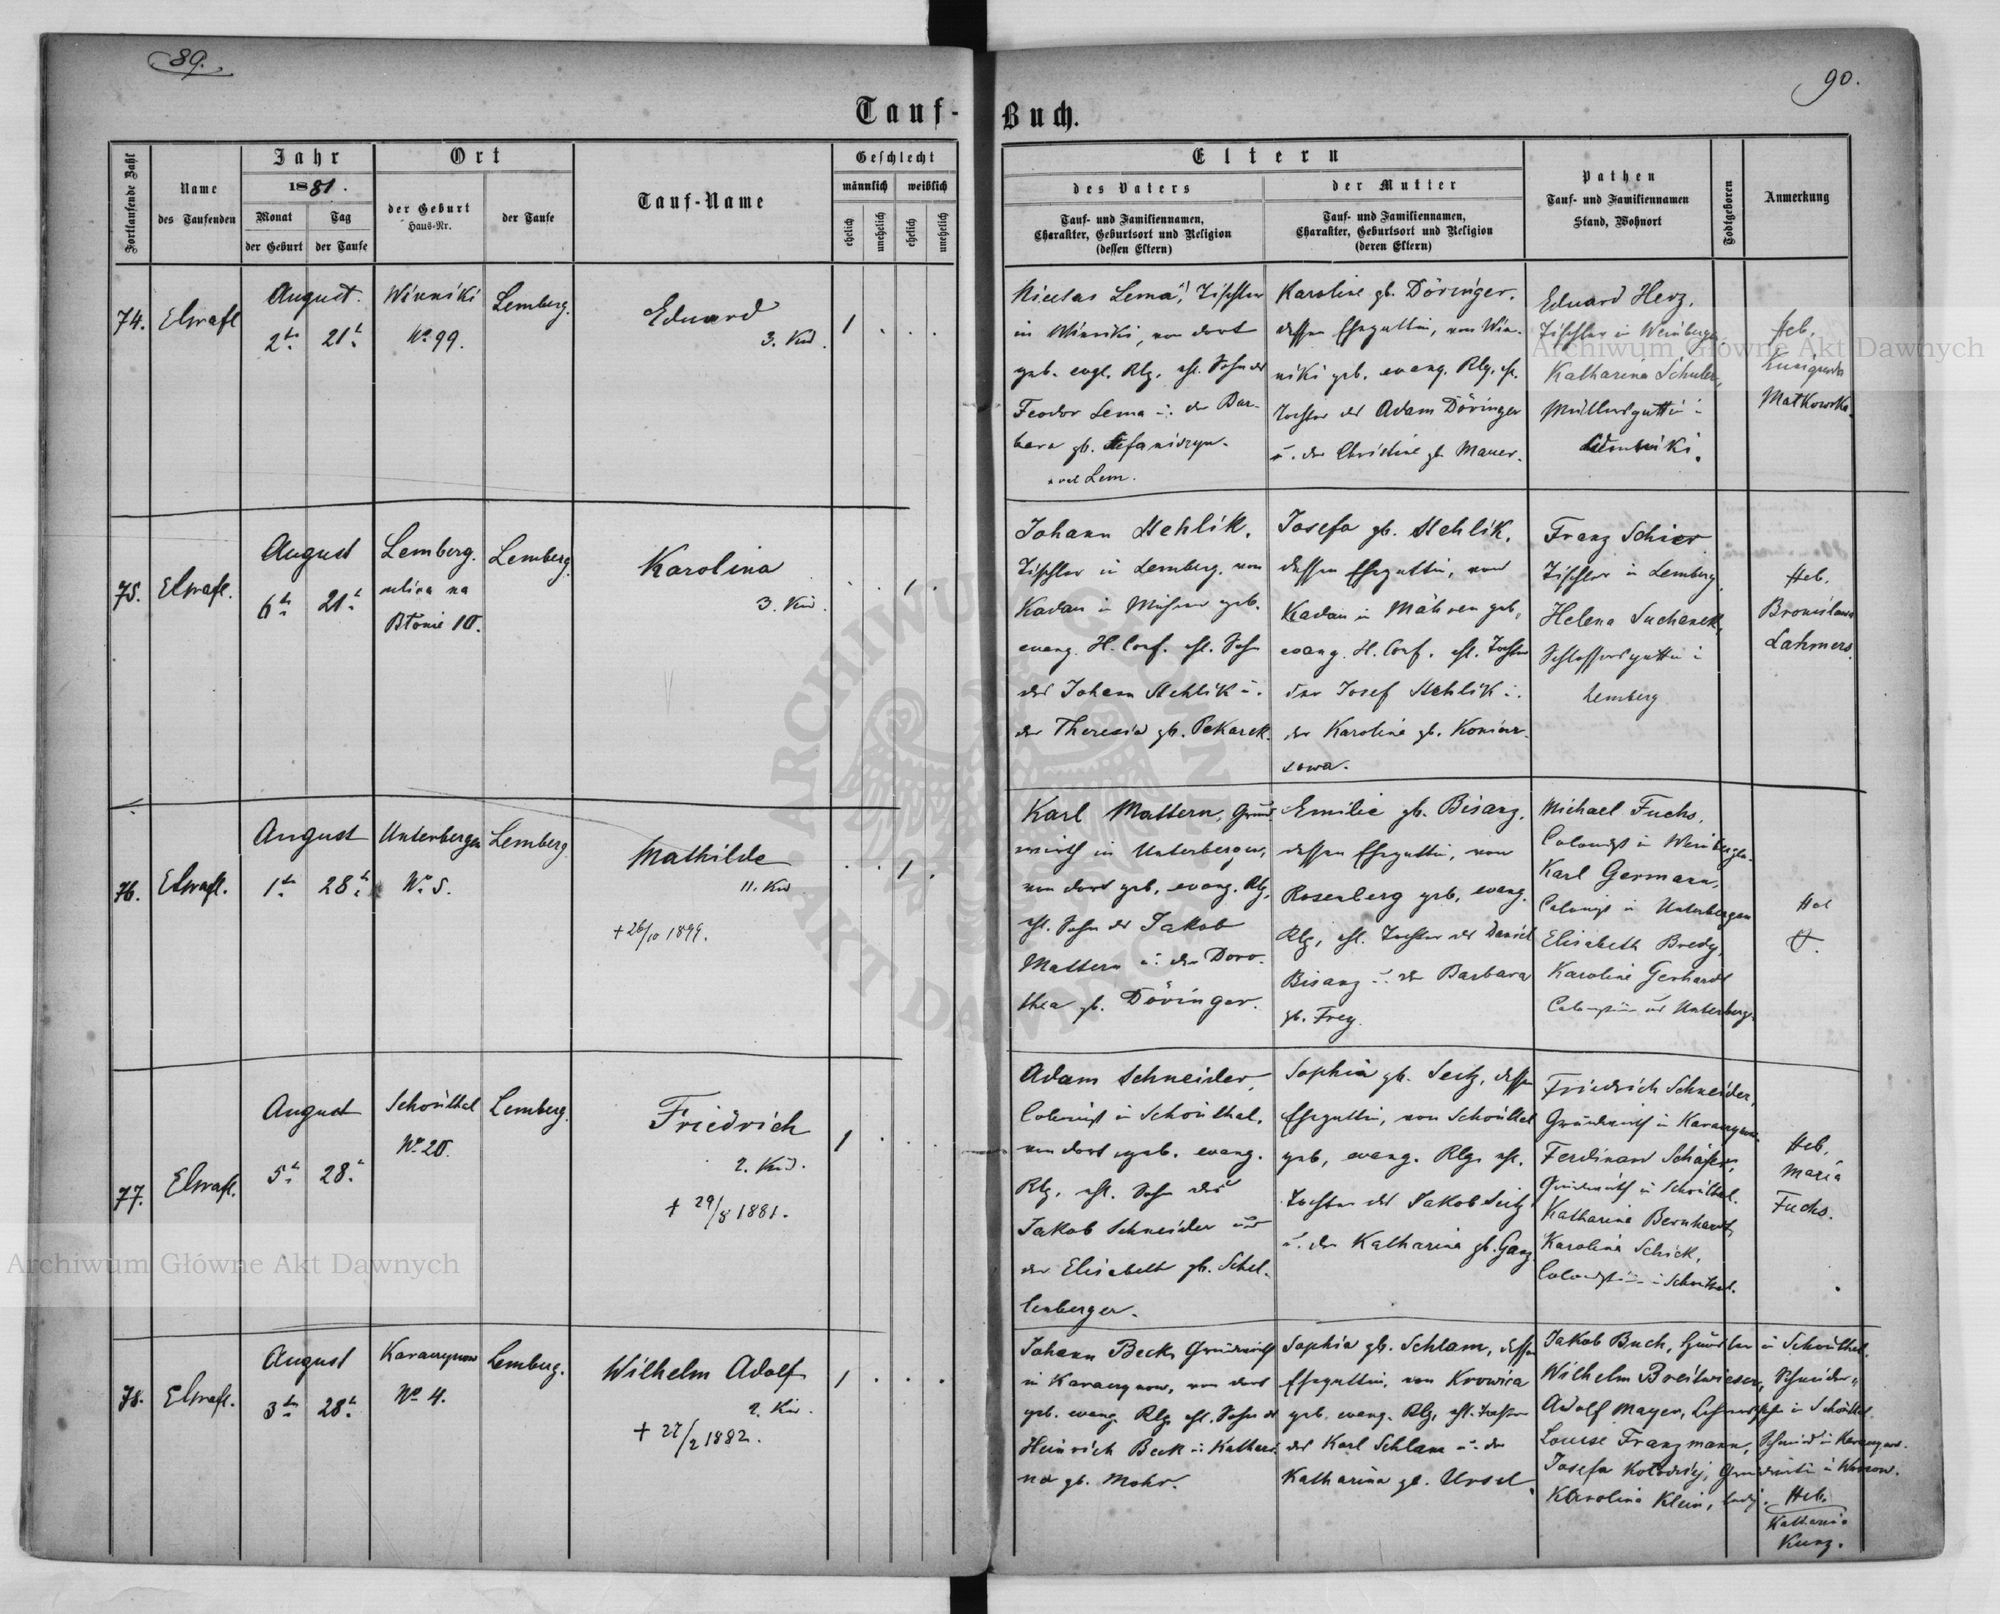 89.
90.
Tauf-Buch.
Fortlaufende Zahl
Name
des Taufenden
Jahr
1881.
Monat
der Geburt
Tag
der Taufe
Ort
der Geburt
Haus-Nr.
der Taufe
Tauf-Name
Geschlecht
männlich
weiblich
ehelich
unehelich
ehelich
unehelich
Eltern
des Vaters
Tauf- und Familiennamen,
Charakter, Geburtsort und Religion
(dessen Eltern)
der Mutter
Tauf- und Familiennamen,
Charakter, Geburtsort und Religion
(deren Eltern)
Pathen
Tauf- und Familiennamen
Stand, Wohnort
Todtgeboren
Anmerkung
74.
August.
2t
21t
Winniki
No 99.
Lemberg.
Eduard
3. Kind.
1
Lema, Tischler
in Winniki, von dort
geb. evgl. Rlg. ehl. Sohn des
Feodor Lema u. der Bar-
bara gb.
vel Lem.
Karoline gb. Döringer.
dessen Ehegattin, von Win-
niki geb. evang. Rlg. ehl.
Tochter des Adam Döringer
u. der Christine gb. Mauer.
Eduard Herz,
Tischler in
Katharina Schuler,
Müllersgattin
Heb.
Matkowska.
75.
August
6t
21t
Lemberg.
ulica na
Błonie 10.
Lemberg.
Karolina
3. Kind.
1
Johann Stehlik,
Tischler in Lemberg, von
Kadau in Mähren geb.
evang. H. Conf. ehl. Sohn
des Johann Stehlik u.
der Theresia gb. Pekarek.
Josefa gb. Stehlik,
dessen Ehegattin, von
Kadau in Mähren geb.
evang. H. Conf. ehl. Tochter
des Josef Stehlik u.
der Karoline gb.
Franz Schier
Tischler in Lemberg,
Helena Suchanek,
Schlossersgattin in
Lemberg
Heb.
Bronisława
Lahmers.
76.
August
1t
28t
Unterbergen
No 5.
Lemberg.
Mathilde
11. Kind
+ 26/10 1899.
1
Karl Mattern, Grund-
wirth in Unterbergen,
von dort geb. evang. Rlg.
ehl. Sohn des Jakob
Mattern u. der Doro-
thea gb. Döringer.
Emilie gb. Bisanz,
dessen Ehegattin, von
Rosenberg geb. evang.
Rlg. ehl. Tochter des Daniel
Bisanz u. der Barbara
gb. Frey.
Michael Fuchs,
Colonist in Weinbergen.
Karl Germann,
Colonist in Unterbergen
Elisabeth Bredy,
Karoline Gerhardt
77.
August
5t
28t
Schönthal
No 20.
Lemberg.
Friedrich
2. Kind.
+ 29/8 1881.
1
Adam Schneider,
Colonist in Schönthal,
von dort geb. evang.
Rlg. ehl. Sohn des
Jakob Schneider und
der Elisabeth gb. Schel-
lenberger.
Sophia gb. Seitz, dessen
Ehegattin, von Schönthal
geb. evang. Rlg. ehl.
Tochter des Jakob Seitz
u. der Katharina gb. Ganz
Friedrich Schneider,
Grundwirth in
Ferdinand Schäfer,
Grundwirth in Schönthal.
Katharina Bernhardt,
Karolina Schick,
Heb.
Maria
Fuchs.
78.
August
3t
28t
No 4.
Lemberg.
Wilhelm Adolf
2. Kind.
+ 27/2 1882.
1
Johann Beck, Grundwirth
in Karaczynow, von dort
geb. evang. Rlg. ehl. Sohn des
Heinrich Beck u. Kathari-
na gb. Mohr.
Sophia gb. Schlam, dessen
Ehegattin, von Krowica
geb. evang. Rlg. ehl. Tochter
des Karl Schlam u. der
Katharina gb. Ursel.
Jakob Buch, in Schönthal.
Wilhelm Breitwieser, Schneider
Adolf Mayer,
Louise Franzmann,
Karolina Klein, ledig.
Heb.
Katharina
Kunz.
Archiwum Główne Akt Dawnych
Archiwum Główne Akt Dawnych